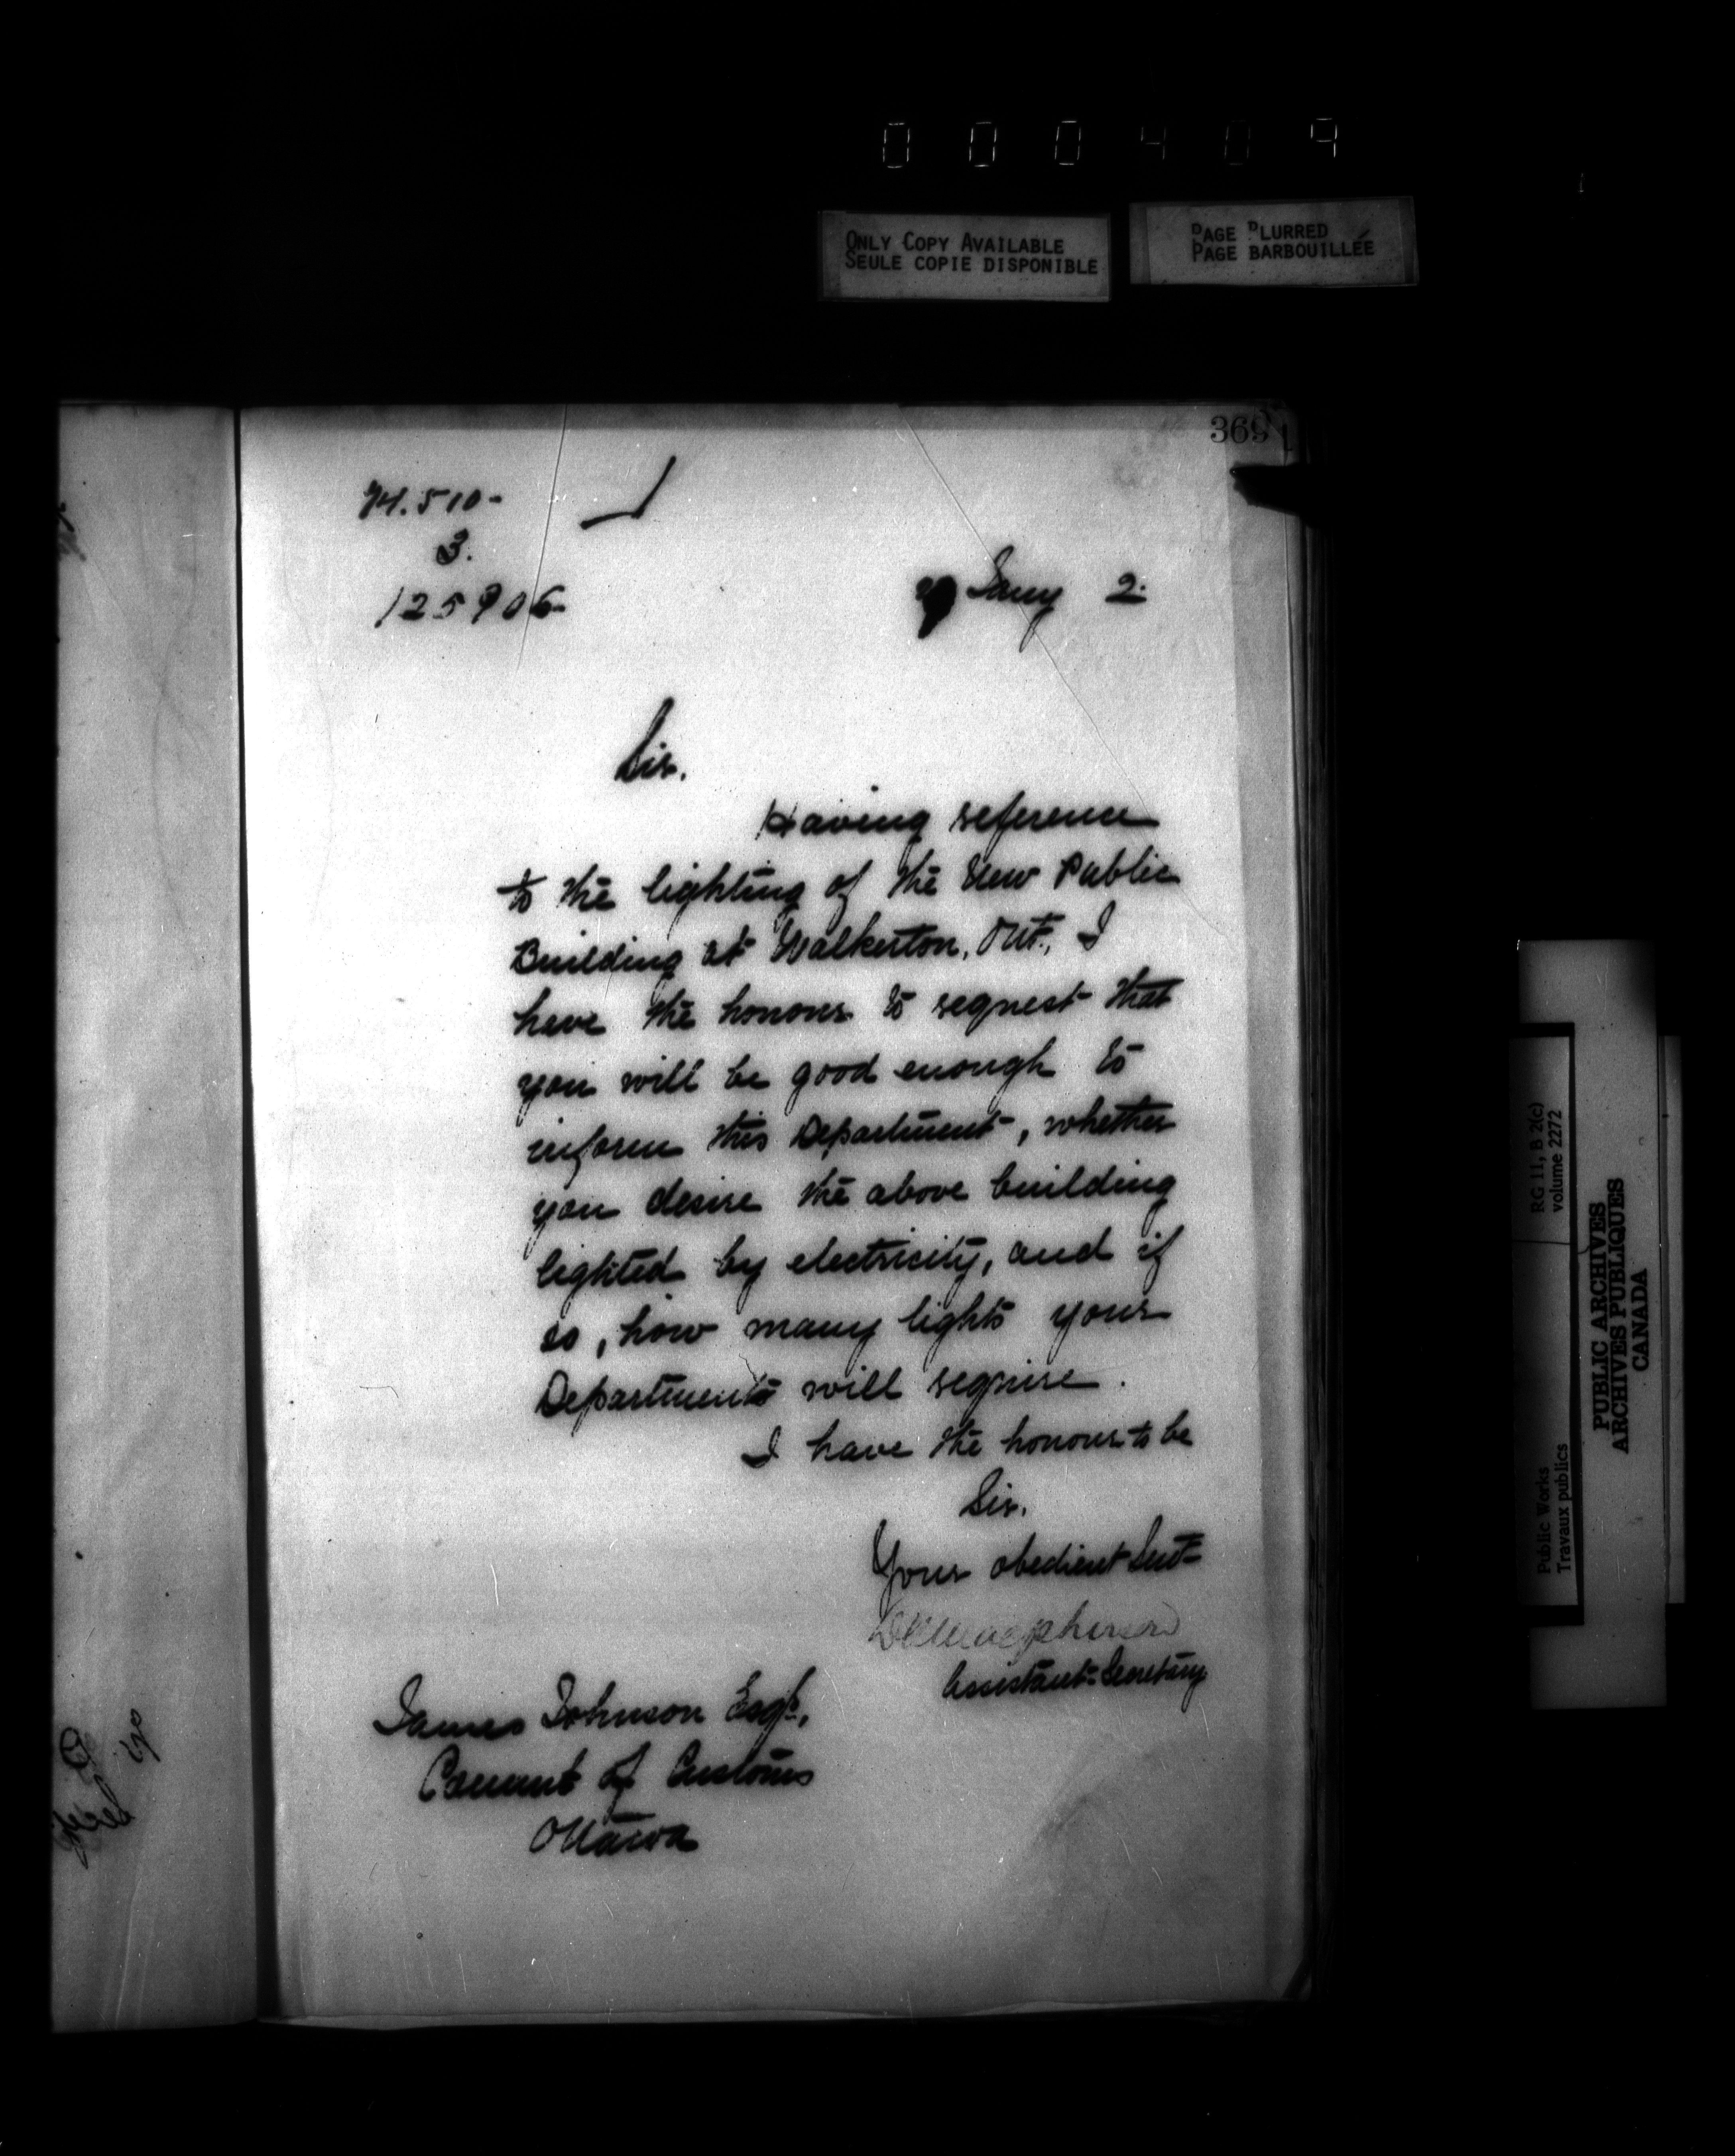 0 0 0 4 0 9
ONLY COPY AVAILABLE
SEULE COPIE DISPONIBLE
PAGE BLURRED
PAGE BARBOUILLÉE
369
74.510-
3.
125906
Jany 2.
Sir.
Having reference
to the lighting of the New Public
Building at Walkerton, Ont., I
have the honour to request that
you will be good enough to
inform this Department, whether
you desire the above building
lighted by electricity, and if
so, how many lights your
Departments will require.
I have the honour to be
Sir.
Your obedient Servt
Assistant Secretary
James Johnson Esqr.,
Commt of Customs
Ottawa
RG 11, B 2(c)
volume 2272
Public Works
Travaux publics
PUBLIC ARCHIVES
ARCHIVES PUBLIQUES
CANADA